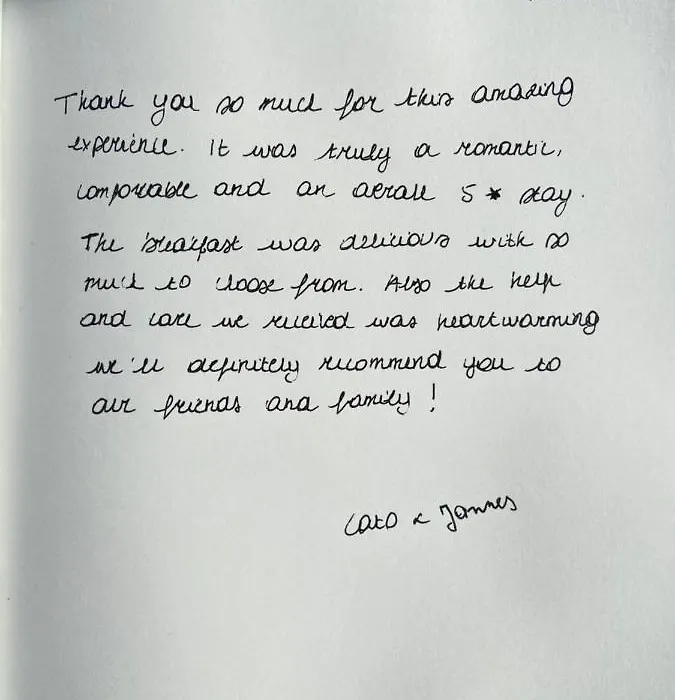 Thank you so much for this amazing
experience. It was truly a romantic,
comforable and an overall 5 * stay.
The breakfast was delicious with so
much to choose from. Also the help
and care we received was heartwarming
we'll definitely recommend you to
our friends and family !
Cato & Jannes